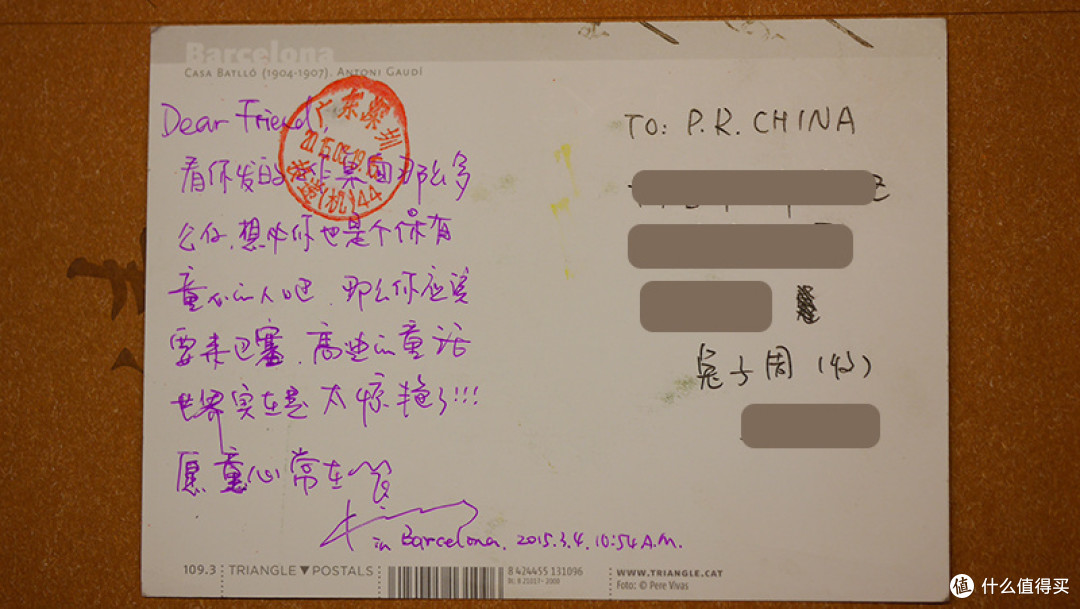 Barcelona
CASA BATLLÓ (1904-1907). ANTONI GAUDÍ
Dear Friend,
广东深圳
2015.03.19
(机)44
看你发的工作桌面那么多
公仔,想必你也是个保有
童心的人吧,那么你应该
要来巴塞,高迪的童话
世界实在是太惊艳了!!!
愿童心常在
in Barcelona, 2015.3.4, 10:54 A.M.
TO: P.R. CHINA
兔子周(收)
109.3 TRIANGLE▼POSTALS
8 424455 131096
WWW.TRIANGLE.CAT
Foto: © Pere Vivas
值 什么值得买